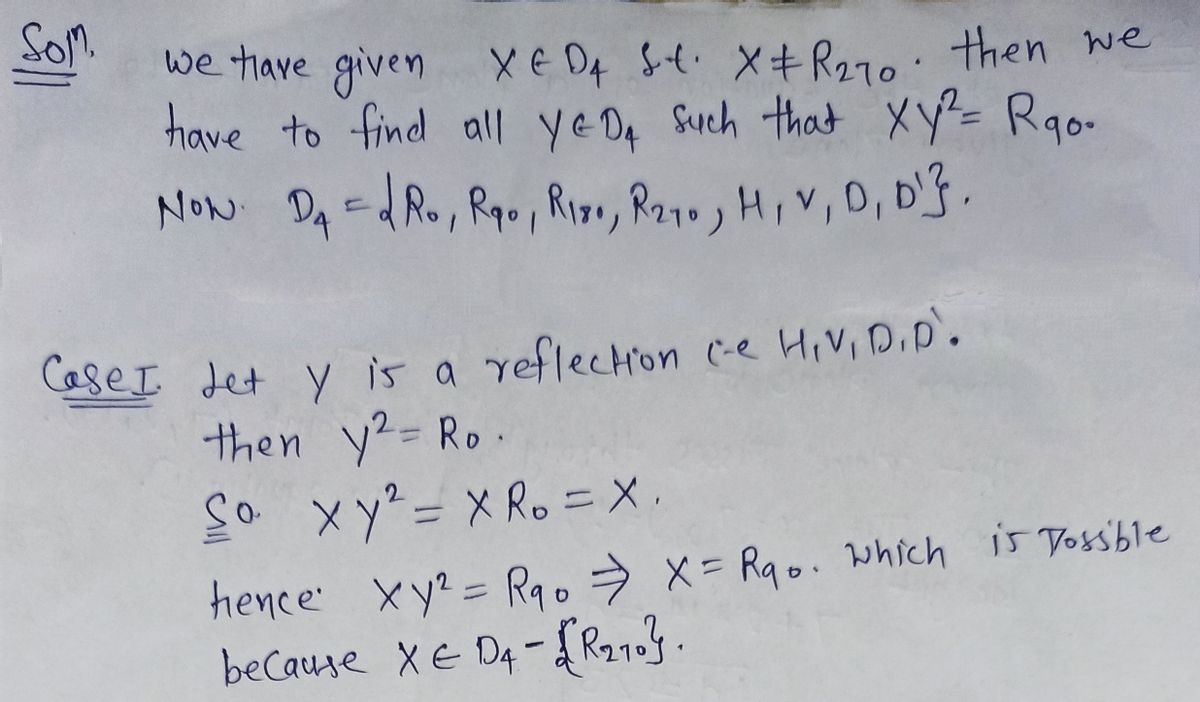 Solⁿ. we have given X ∈ D₄ s.t. X ≠ R₂₇₀. then we
have to find all Y ∈ D₄ such that XY² = R₉₀.
Now. D₄ = {R₀, R₉₀, R₁₈₀, R₂₇₀, H, V, D, D'}.
Case I Let Y is a reflection i-e H, V, D, D'.
then Y² = R₀.
So XY² = XR₀ = X.
hence XY² = R₉₀ ⇒ X = R₉₀. which is Possible
because X ∈ D₄ - {R₂₇₀}.